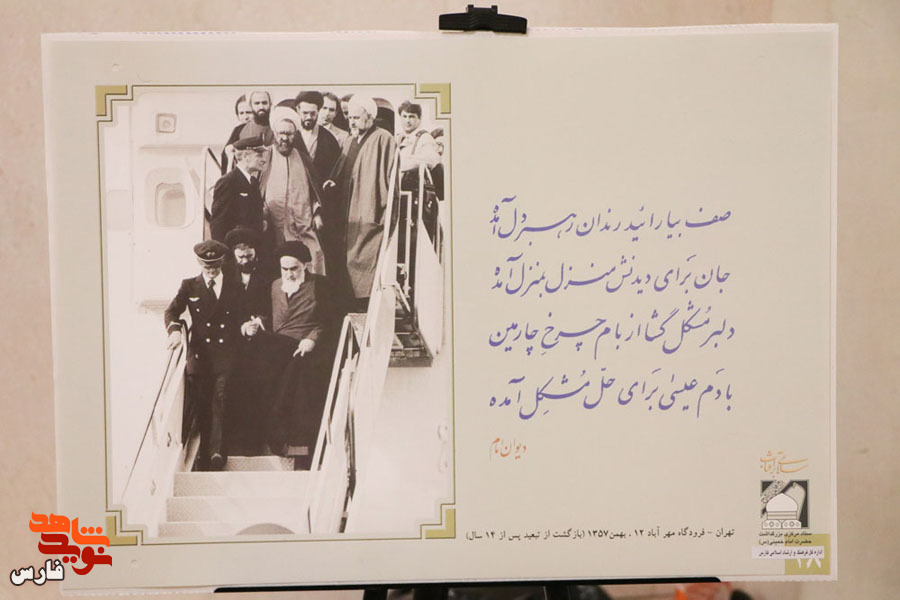 صف بیارائید رندان رهبر دل آمده
جان برای دیدنش منزل بمنزل آمده
دلبر مُشگل گشا از بام چرخِ چارمین
بادَم عیسٰی بَرای حلّ مُشکِل آمده
دیوان امام
تهران - فرودگاه مهر آباد ۱۲ بهمن ۱۳۵۷ (بازگشت از تبعید پس از ۱۴ سال)
ستاد مرکزی بزرگداشت
حضرت امام خمینی (س)
اداره کل فرهنگ و ارشاد اسلامی فارس
نوید شاهد
فارس